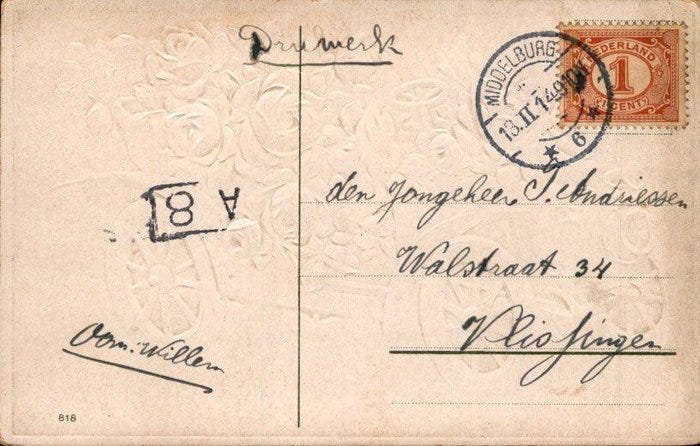 Drukwerk
MIDDELBURG
13.II.14.9-10V
6
NEDERLAND
1
CENT
A 8
den Jongeheer J. Andriessen
Walstraat 34
Vlissingen
Oom Willem
818